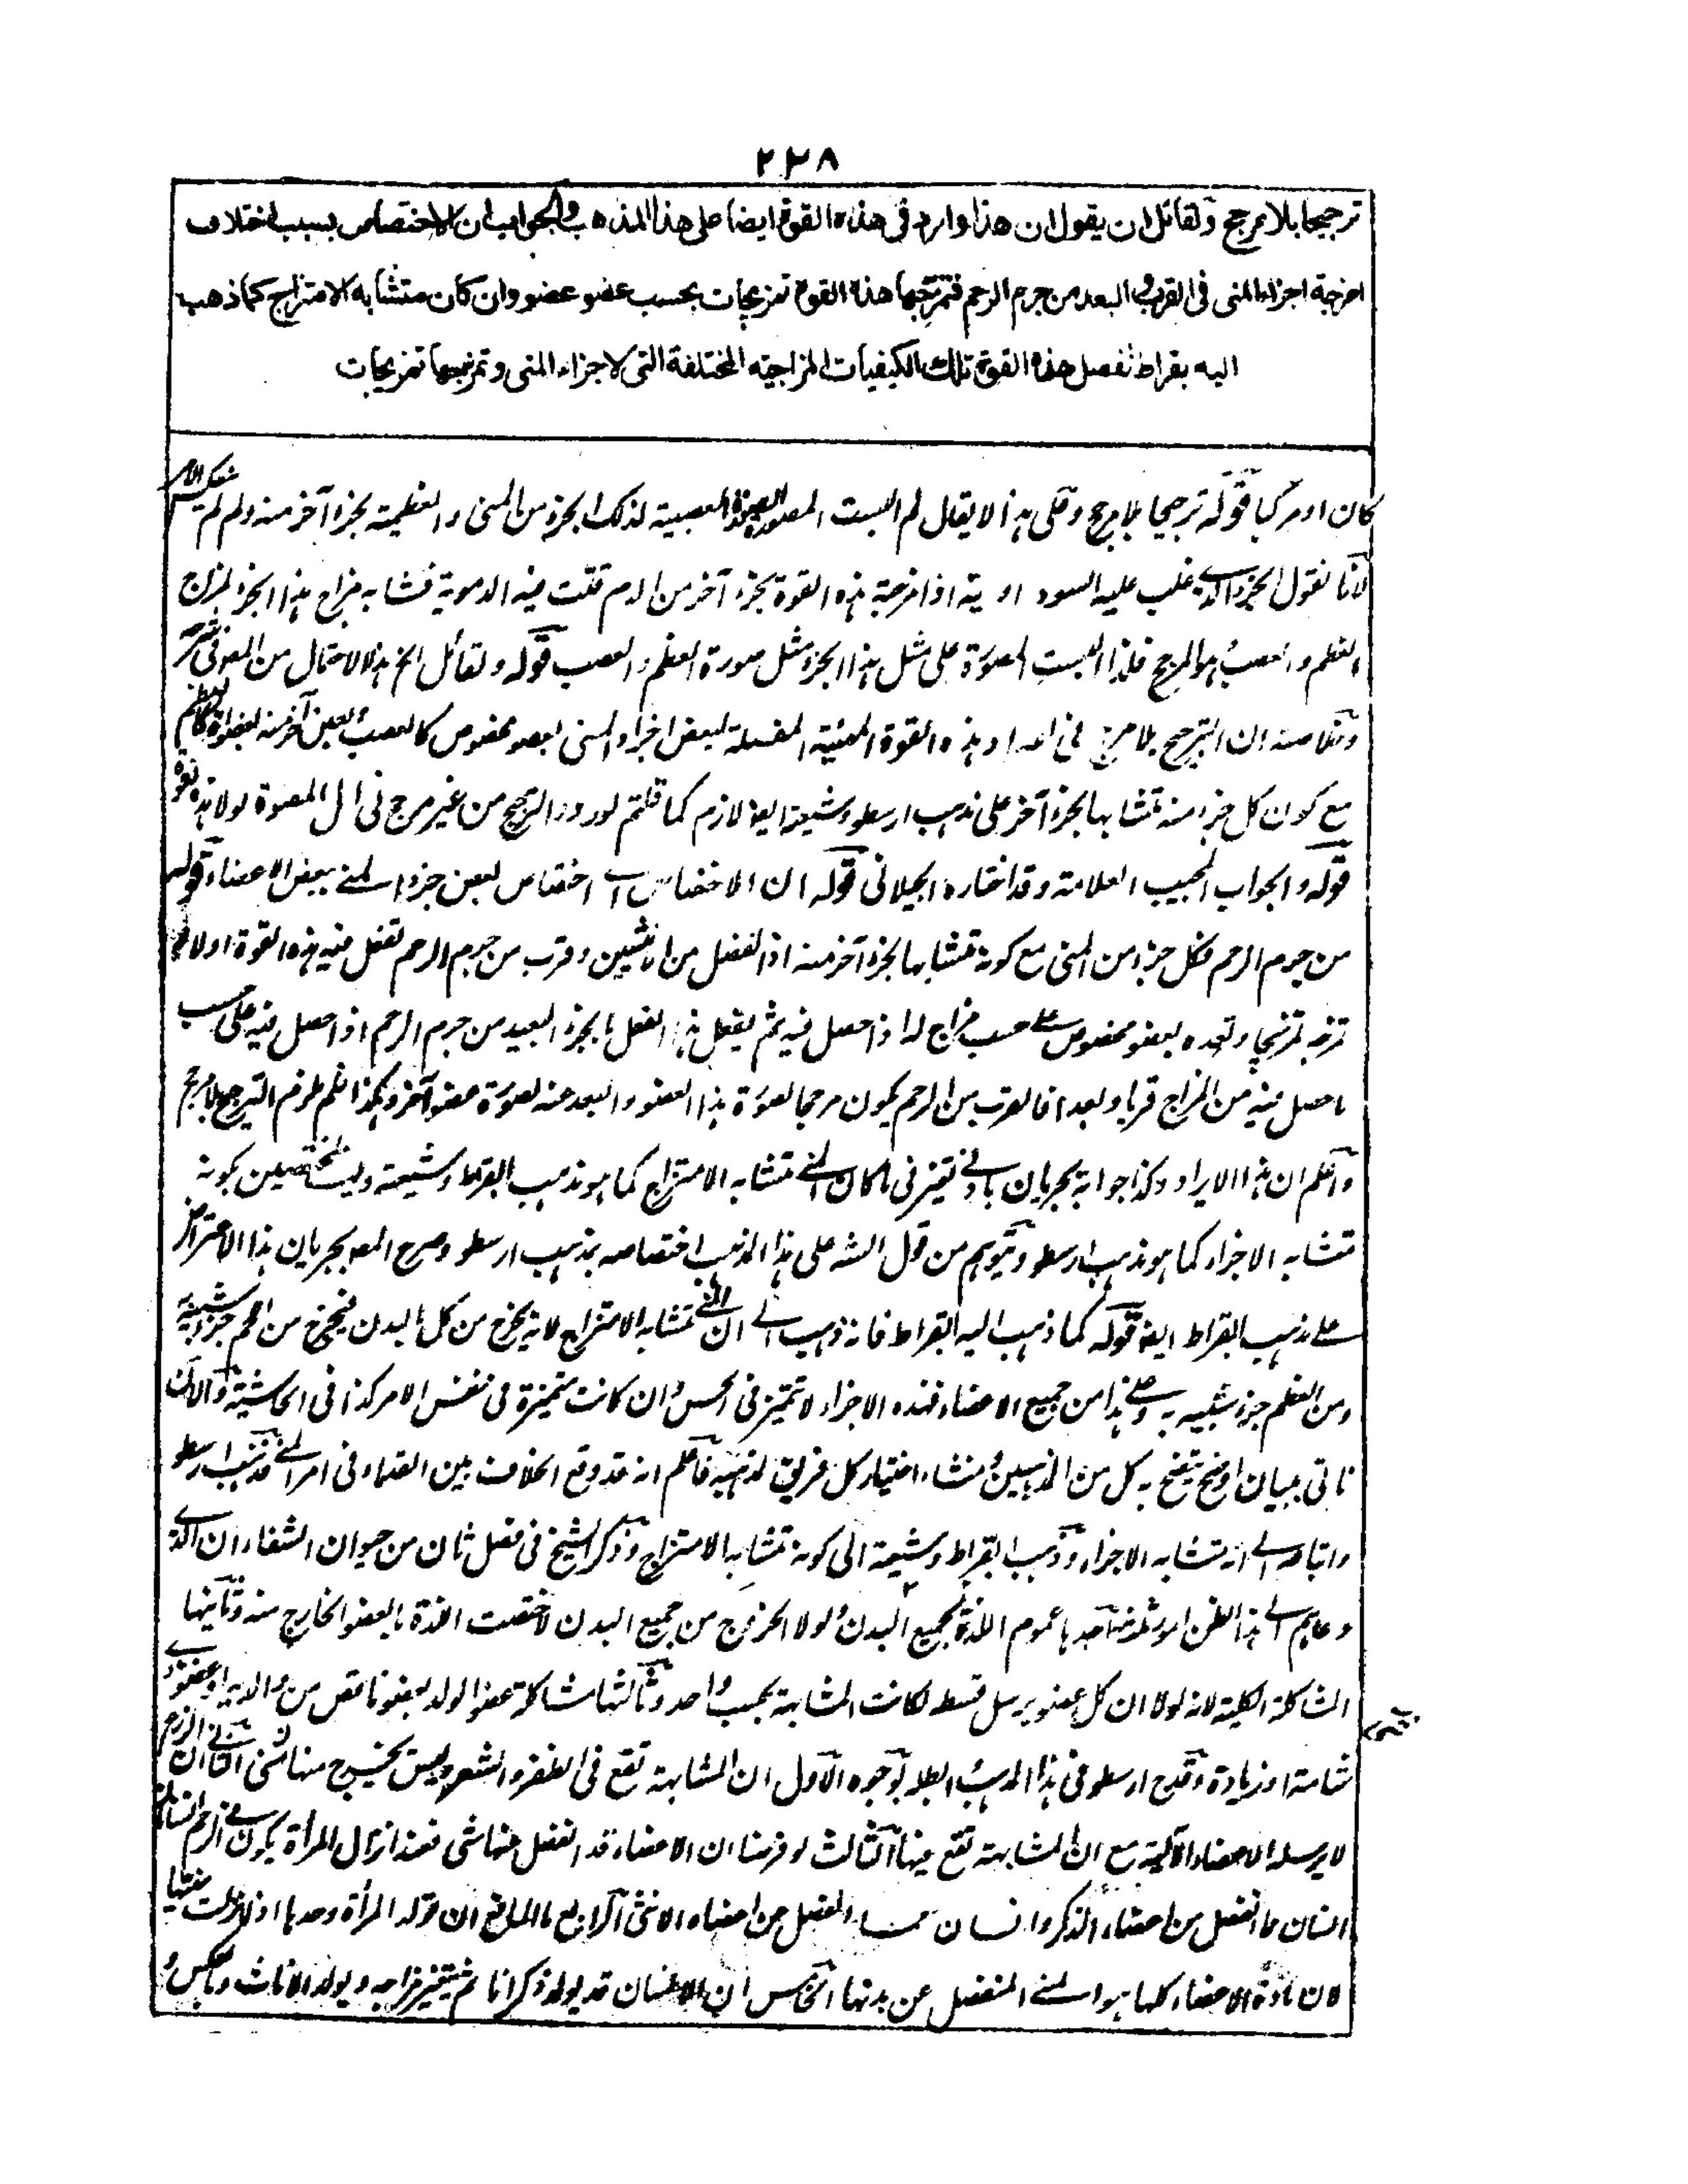 ٢٣٨
ترجيحا بلا مرجح ولقائل ان يقول ان هذا وارد فى هذه القوة ايضا على هذا المذهب والجواب ان الاختصاص بسبب اختلاف
امزجة اجزاء المنى فى القرب والبعد من جرم الرحم فتمزجها هذه القوة تمزيجات بحسب عضو عضو وان كان متشابه الامتزاج كما ذهب
اليه بقراط تفصل هذه القوة تلك الكيفيات المزاجية المختلفة التى لاجزاء المنى وتمزجها تمزيجات
كان او مركبا قوله ترجيحا بلا مرجح وعلى هذا لا يقال لم البست المصورة الصورة العصبية لذلك الجزء من المنى والعظمية بجزء آخر منه ولم لم ينعكس الامر
لانا نقول الجزء الذے غلب عليه السوداوية اذا مزجته هذه القوة بجزء آخر من الدم قلت فيه الدموية فشابه مزاج هذا الجزء لمزاج
العظم والعصب هو المرجح فلذا البست المصورة على مثل هذا الجزء مثل صورة العظم والعصب قوله ولقائل الخ هذا الاحتمال من المص فى شرحه
وخلاصته ان الترجيح بلا مرجح فى اعداد هذه القوة المغيرة المفصلة لبعض اجزاء المنى لعضو مخصوص كالعصب وبعض آخر منه لعضو آخر كالعظم
مع كون كل جزء منه متشابها لجزء آخر على مذهب ارسطو وشيعته ايضا لازم كما قلتم لورود الترجيح من غير مرجح فى المصورة لولا هذه القوة
قوله والجواب المجيب العلامة وقد اختاره الجيلانى قوله ان الاختصاص اے اختصاص بعض جزء المنے ببعض الاعضاء قوله
من جرم الرحم فكل جزء من المنى مع كونه متشابها لجزء آخر منه اذا انفصل من الانثيين وقرب من جرم الرحم تفعل فيه هذه القوة اولا
تمزجه تمزيجا وتعده لعضو مخصوص علے حسب مزاج له اذا حصل فيه ثم يفعل هذا الفعل بالجزء البعيد من جرم الرحم اذا حصل فيه على حسب
ما حصل فيه من المزاج قربا وبعدا فالقرب من الرحم يكون مرجحا لصورة هذا العضو والبعد عنه لصورة عضو آخر وهكذا فلم يلزم الترجيح بلا مرجح
واعلم ان هذا الايراد وكذا جوابه يجريان بادنے تغير فى ما كان المنے متشابه الامتزاج كما هو مذهب البقراط وشيعته وليسا مختصين بكونه
متشابه الاجزاء كما هو مذهب ارسطو ويتوهم من قول الشه على هذا المذهب اختصاصه بمذهب ارسطو وصرح المص بجريان هذا الاعتراض
علے مذهب البقراط ايضا قوله كما ذهب اليه البقراط فانه ذهب الے ان المنے متشابه الامتزاج لانه يخرج من كل البدن فيخرج من اللحم جزء شبيه به
ومن العظم جزء شبيه به وعلے هذا من جميع الاعضاء فهذه الاجزاء لا تتميز فى الحس وان كانت متميزة فى نفس الامر كذا فى الحاشية والآن
ناتى ببيان اوضح يتضح به كل من المذهبين ومنشاء اختيار كل فريق لمذهبه فاعلم انه قد وقع الخلاف بين القدماء فى امر المنے فذهب ارسطو
واتباعه الے انه متشابه الاجزاء وذهب البقراط وشيعته الى كونه متشابه الامتزاج وذكر الشيخ فى فصل ثان من حيوان الشفاء ان الذے
دعاهم الے هذا الظن امور ثلثة احدها عموم اللذة لجميع البدن ولولا الخروج من جميع البدن لاختصت اللذة بالعضو الخارج منه وثانيها
المشاكلة الكلية لانه لولا ان كل عضو يرسل قسطه لكانت المشابهة بحسب واحد وثالثها مشاكلة عضو الولد لعضو ناقص من والديه او عضو ذے
شامة او زيادة وقدح ارسطو فى هذا المذهب وابطله بوجوه الاول ان المشابهة تقع فى الظفر والشعر وليس يخرج منهما شئ الثانى ان المنے
لا يرسله الاعضاء الآلية مع ان المشابهة تقع فيها الثالث لو فرضنا ان الاعضاء قد انفصل عنها شى فعند انزال المرأة يكون فے الرحم انسانان
انسان مما انفصل من اعضاء الذكر وانسان مما انفصل من اعضاء الانثى الرابع ما المانع ان تولد المرأة وحدها اذا انزلت منيها
لان مادة الاعضاء كلها هو المنے المنفصل عن بدنها الخامس ان الانسان قد يولد ذكرانا ثم يتغير مزاجه ويولد الاناث وبالعكس و